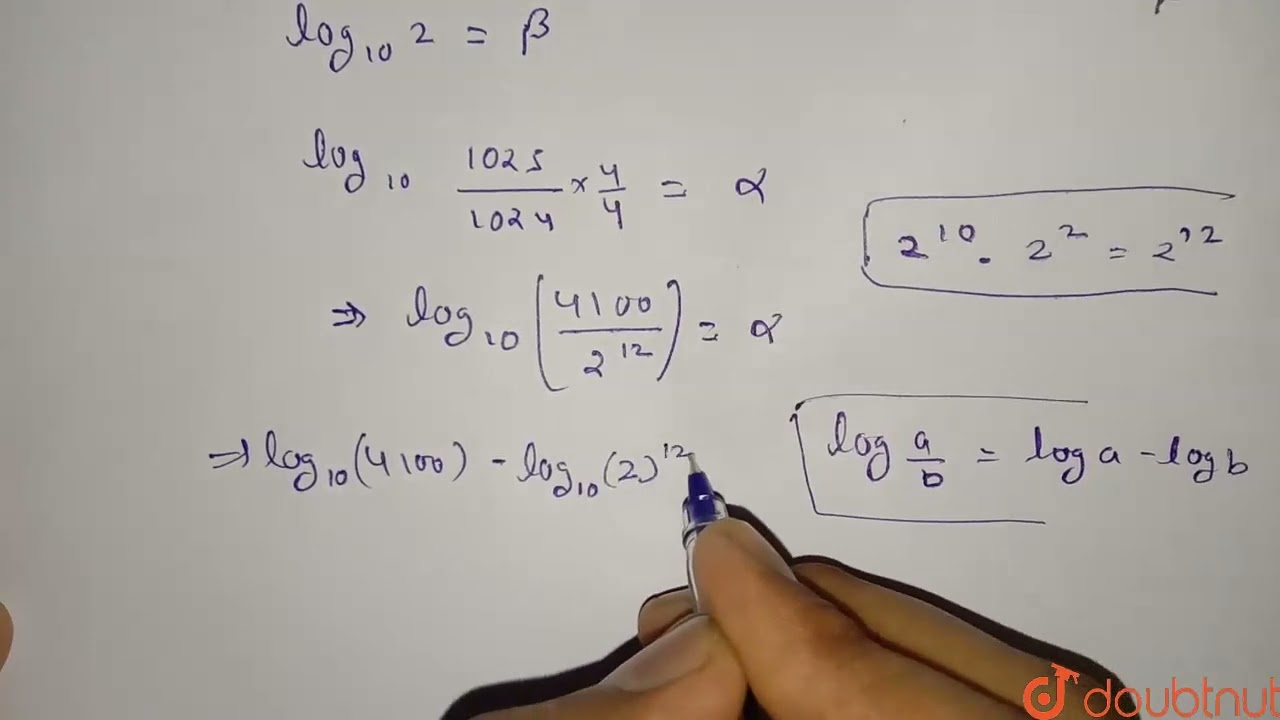 log₁₀ 2 = β
log₁₀ 1025/1024 × 4/4 = α
2¹⁰ · 2² = 2¹²
⇒ log₁₀ (4100/2¹²) = α
⇒ log₁₀(4100) - log₁₀(2)¹²
log a/b = log a - log b
doubtnut